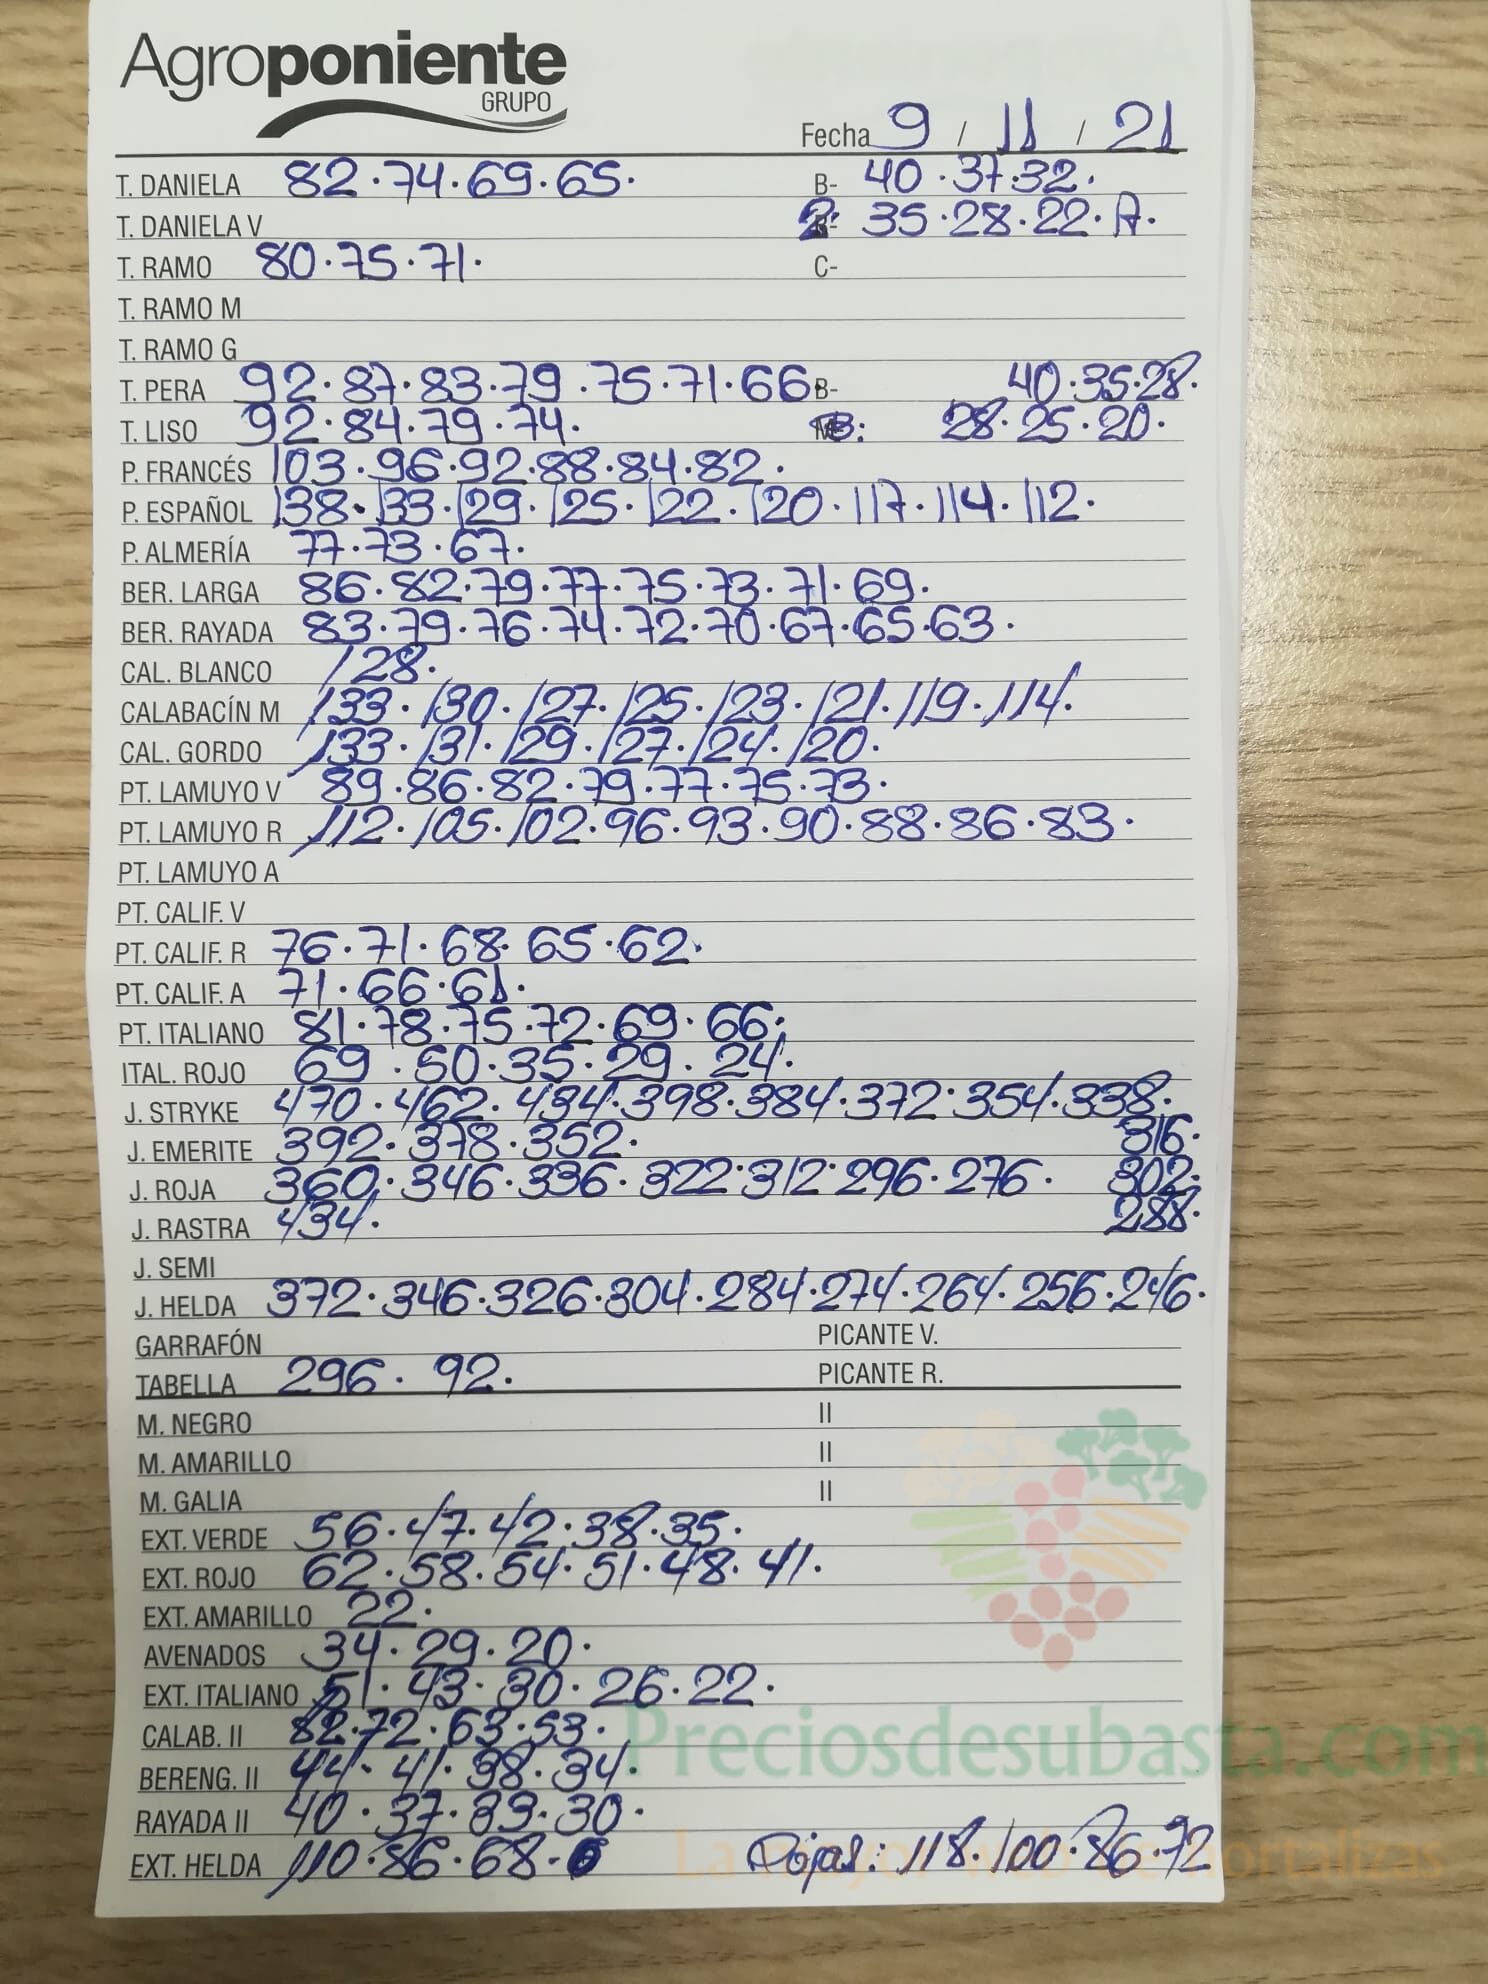 Agroponiente
GRUPO
Fecha 9 / 11 / 21
T. DANIELA 82.74.69.65. B- 40.37.32.
T. DANIELA V 2: 35.28.22.A.
T. RAMO 80.75.71. C-
T. RAMO M
T. RAMO G
T. PERA 92.87.83.79.75.71.66. B- 40.35.28.
T. LISO 92.84.79.74. B: 28.25.20.
P. FRANCÉS 103.96.92.88.84.82.
P. ESPAÑOL 138.133.129.125.122.120.117.114.112.
P. ALMERÍA 77.73.67.
BER. LARGA 86.82.79.77.75.73.71.69.
BER. RAYADA 83.79.76.74.72.70.67.65.63.
CAL. BLANCO 128.
CALABACÍN M 133.130.127.125.123.121.119.114.
CAL. GORDO 133.131.129.127.124.120.
PT. LAMUYO V 89.86.82.79.77.75.73.
PT. LAMUYO R 112.105.102.96.93.90.88.86.83.
PT. LAMUYO A
PT. CALIF. V
PT. CALIF. R 76.71.68.65.62.
PT. CALIF. A 71.66.61.
PT. ITALIANO 81.78.75.72.69.66.
ITAL. ROJO 69.50.35.29.24.
J. STRYKE 470.462.434.398.384.372.354.338.
J. EMERITE 392.378.352. 316.
J. ROJA 360.346.336.322.312.296.276. 302.
J. RASTRA 434. 288.
J. SEMI
J. HELDA 372.346.326.304.284.274.264.256.246.
GARRAFÓN PICANTE V.
TABELLA 296. 92. PICANTE R.
M. NEGRO II
M. AMARILLO II
M. GALIA II
EXT. VERDE 56.47.42.38.35.
EXT. ROJO 62.58.54.51.48.41.
EXT. AMARILLO 22.
AVENADOS 34.29.20.
EXT. ITALIANO 51.43.30.26.22.
CALAB. II 82.72.63.53.
Preciosdesubasta.com
BERENG. II 44.41.38.34.
RAYADA II 40.37.33.30.
EXT. HELDA 110.86.68. Rojas: 118.100.86.72